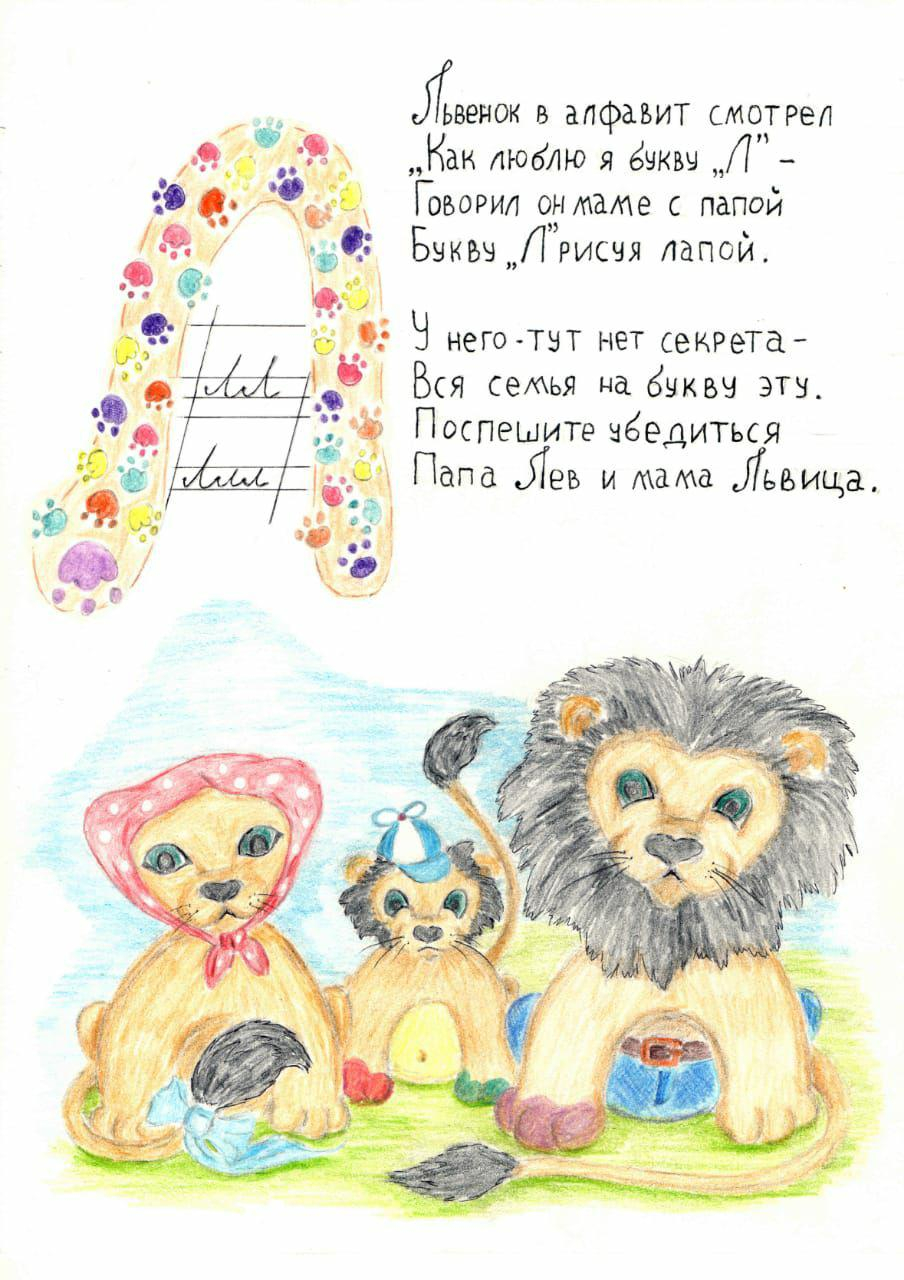 Львенок в алфавит смотрел
„Как люблю я букву „Л” –
Говорил он маме с папой
Букву „Л” рисуя лапой.
У него - тут нет секрета –
Вся семья на букву эту.
Поспешите убедиться
Папа Лев и мама Львица.
Л
лл
ллл